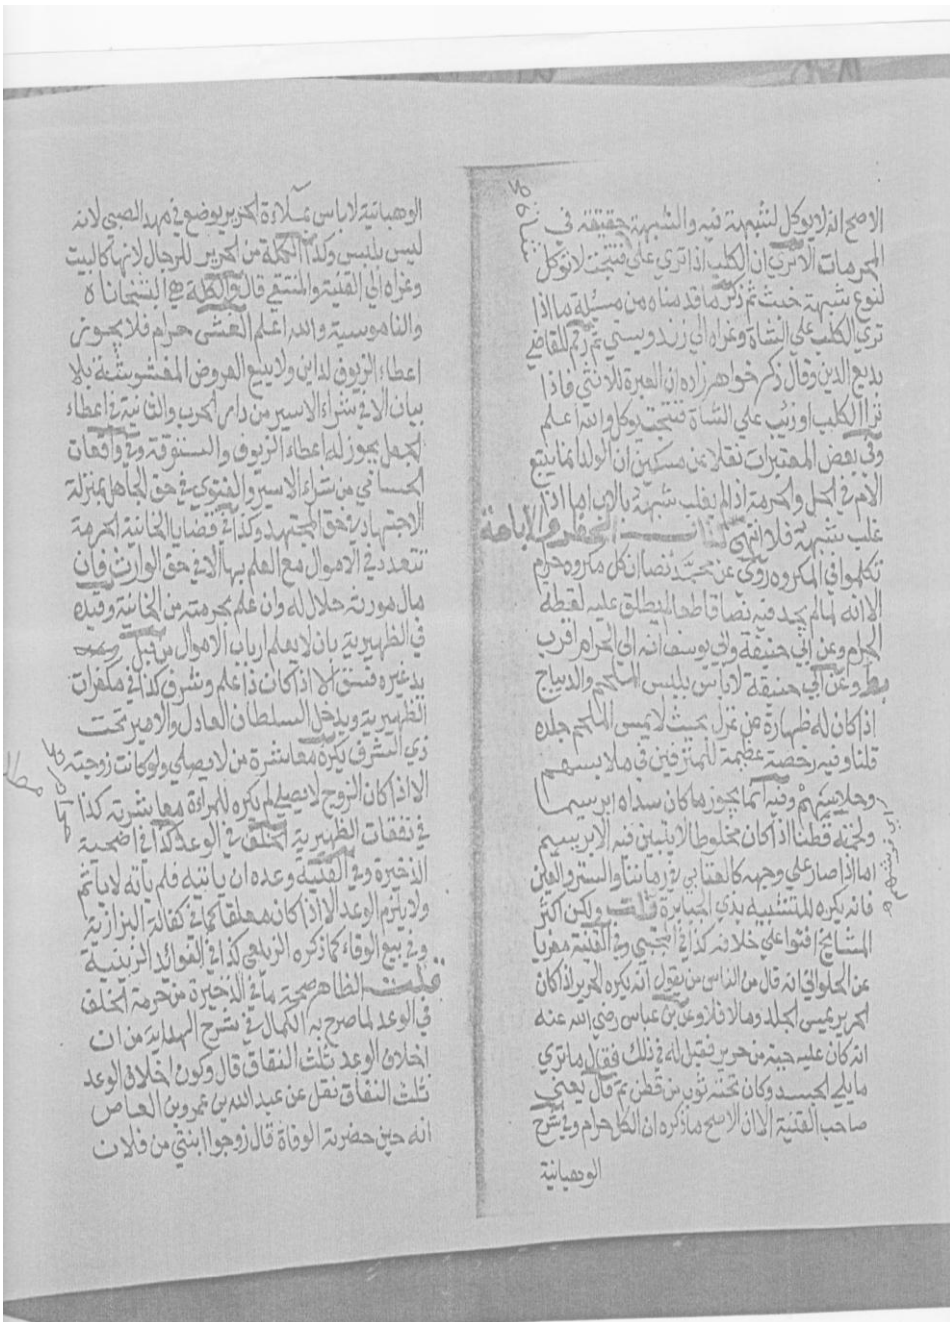 الاصح انه لا يوكل لشبهة فيه والشبهة حقيقة في
المحرمات الا تري ان الكلب اذا نزي علي فنتجت لا توكل
لنوع شبهة خبث ثم ذكر ما قدمناه من مسئلة ما اذا
نزي الكلب علي الشاة وعزاه الي ثم رقم للقاضي
بديع الدين وقال ذكر خواهر زاده ان العبرة للانثي فاذا
نزا الكلب او ذيب علي الشاة فنتجت يوكل والله اعلم
وفي بعض المعتبرات نقلا عن مسكين ان الولد انما يتبع
الام في الحل والحرمة اذا لم يغلب شبهه بالاب اما اذا
غلب شبهه فلا انتهي كتاب الحظر والاباحة
تكلموا في المكروه روي عن محمد نصا ان كل مكروه حرام
الا انه لما لم يجد فيه نصا قاطعا لم يطلق عليه لفظة
الحرام وعن ابي حنيفة وابي يوسف انه الي الحرام اقرب
وعن ابي حنيفة لا باس بلبس الملحم والديباج
اذ كان له ظهارة من غزل بحيث لا يمس الملحم جلده
قلنا وفيه رخصة عظيمة للمترفين في ملابسهم
وفيه انما يجوز ما كان سداه ابريسما
ولحمته قطنا اذا كان مخلوطا لا يتبين فيه الابريسم
اما اذا صار علي وجهه كالعتابي في زماننا والستر
فانه يكره للتشبيه بذي الجبابرة قلت ولكن اكثر
المشايخ افتوا علي خلافه كذا في المجتبي وفي القنية معزيا
عن الحلواني انه قال من الناس من يقول انه يكره الحرير اذا كان
الحرير يمس الجلد وما لا فلا وعن بن عباس رضي الله عنه
انه كان عليه جبة من حرير فقيل له في ذلك فقال ما تري
ما يلي الجسد وكان تحته ثوب من قطن ثم قال يعني
صاحب القنية الا ان الاصح ما ذكره ان الكل حرام وفي شرح
الوهبانية
الوهبانية لا باس بملاءة الحرير يوضع في مهد الصبي لانه
ليس بلبس وكذا الكلة من الحرير للرجال لانها كالبيت
وعزاه الي القنية والمنتقي قال والكلة هي
والناموسية والله اعلم الغش حرام فلا يجوز
اعطاء الزيوف لداين ولا بيع العروض المغشوشة بلا
بيان الا في شراء الاسير من دار الحرب والثانية في اعطاء
الجعل يجوز له اعطاء الزيوف والستوقة وفي واقعات
الحسامي من شراء الاسير والفتوي في حق الجاهل بمنزلة
الاجتهاد في حق المجتهد وكذا في قضايا الخانية الحرمة
تتعدد في الاموال مع العلم بها الا في حق الوارث فان
مال مورثه حلال له وان علم بحرمته من الخانية وقيده
في الظهيرية بان لا يعلم ارباب الاموال من قبل
يد غيره فسق الا اذا كان ذا علم وشرف كذا في مكفرات
الظهيرية ويدخل السلطان العادل والامير تحت
ذي الشرف يكره معاشرة من لا يصلي ولو كانت زوجته
الا اذا كان الزوج لا يصلي لم يكره للمراءة معاشرته كذا
في نفقات الظهيرية الخلف في الوعد كذا في اضحية
الذخيرة وفي القنية وعده ان ياتيه فلم ياته لا ياثم
ولا يلزم الوعد الا اذا كان معلقا كما في كفالة البزازية
وفي بيع الوفاء كما ذكره الزيلعي كذا في الفوائد الزينية
قلت الظاهر صحة ما في الذخيرة من حرمة الخلف
في الوعد لما صرح به الكمال في شرح الهداية من ان
اخلاف الوعد ثلث النفاق قال وكون اخلاف الوعد
ثلث النفاق نقل عن عبد الله بن عمرو بن العاص
انه حين حضرته الوفاة قال زوجوا ابنتي من فلان